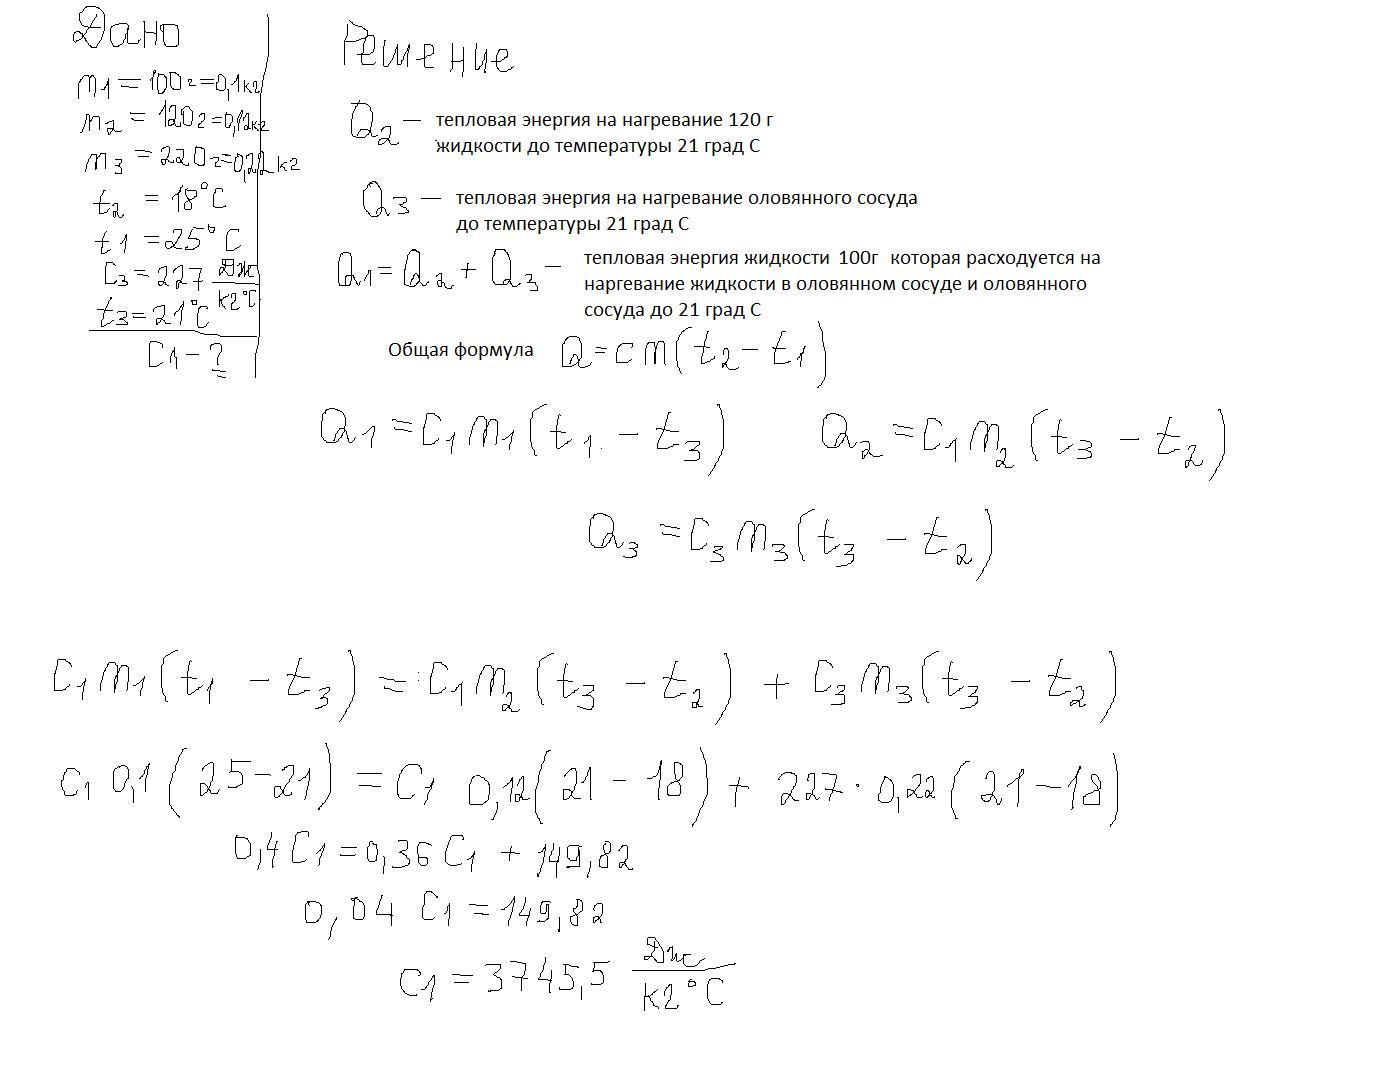 Дано
m1 = 100г = 0,1кг
m2 = 120г = 0,12кг
m3 = 220г = 0,22кг
t2 = 18°C
t1 = 25°C
C3 = 227 Дж/кг°C
t3 = 21°C
C1 - ?
Решение
Q2 — тепловая энергия на нагревание 120 г
жидкости до температуры 21 град С
Q3 — тепловая энергия на нагревание оловянного сосуда
до температуры 21 град С
Q1 = Q2 + Q3 — тепловая энергия жидкости 100г которая расходуется на
наргевание жидкости в оловянном сосуде и оловянного
сосуда до 21 град С
Общая формула Q = cm(t2 - t1)
Q1 = C1 m1 (t1 - t3) Q2 = C1 m2 (t3 - t2)
Q3 = C3 m3 (t3 - t2)
C1 m1 (t1 - t3) = C1 m2 (t3 - t2) + C3 m3 (t3 - t2)
C1 0,1 (25 - 21) = C1 0,12 (21 - 18) + 227 · 0,22 (21 - 18)
0,4 C1 = 0,36 C1 + 149,82
0,04 C1 = 149,82
C1 = 3745,5 Дж/кг°C